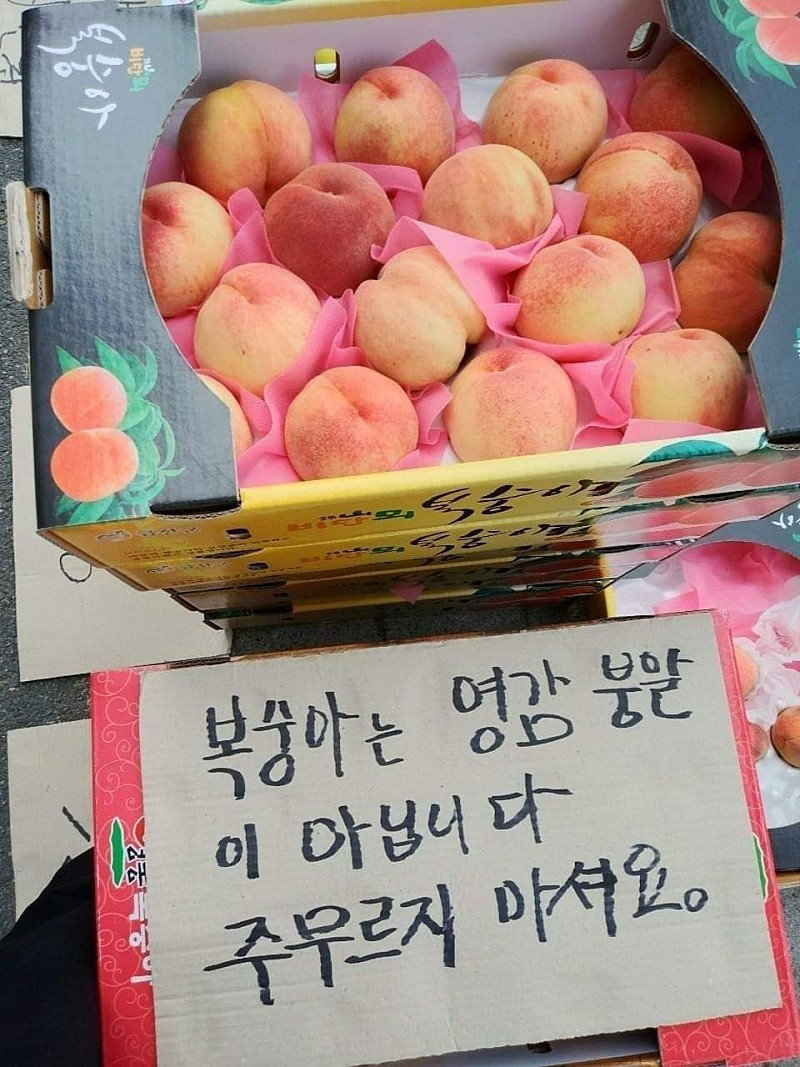 복숭아
복숭아
복쑹아는 영감 붕알
이 아닙니다
주무르지 마셔요。